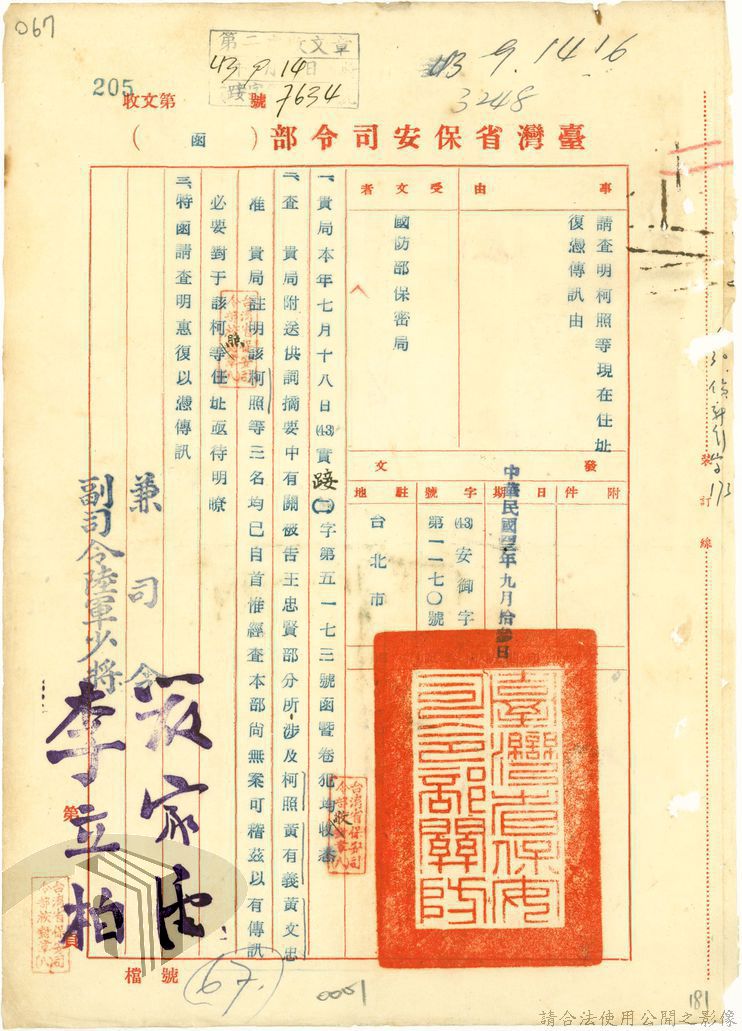 067
第二
章文收
43 9. 14
43 9. 14 16
3248
205
收文第
7634
號
臺灣省保安司令部
(函)
事由
請查明柯照等現在住址
復憑傳訊由
受文者
國防部保密局
附件
發文
日期
中華民國年九月拾參日
字號
(43)安御字
第一一七〇號
駐地
台北市
一、貴局本年七月十八日(43)實踐字第五一七三號函暨卷犯均收悉
二、查 貴局附送供詞摘要中有關被告王忠賢部分所涉及柯照黃有義黃文忠
准 貴局註明該柯照等三名均已自首惟經查本部尚無案可稽茲以有傳訊
必要對于該柯照等住址亟待明瞭
三、特函請查明惠復以憑傳訊
兼司令
俞鴻鈞
副司令陸軍少將
李立柏
臺灣省保安司令部關防
裝訂線
173
第
頁
檔號
67.
0001
181
請合法使用公開之影像